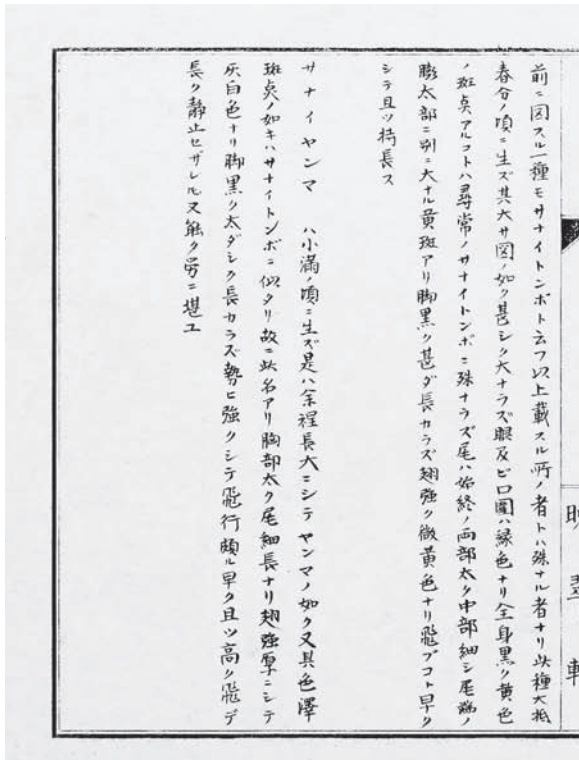 前ニ図スル一種モサナイトンボト云フ以上載スル所ノ者トハ殊ナル者ナリ此種大抵
春分ノ頃ニ生ズ其大サ図ノ如ク甚シク大ナラズ眼及ビ口圍ハ緑色ナリ全身黒ク黄色
ノ斑点アルコトハ尋常ノサナイトンボニ殊ナラズ尾ハ始終ノ両部太ク中部細シ尾端ノ
膨太部ニ別ニ大ナル黄斑アリ脚黒ク甚ダ長カラズ翅強ク微黄色ナリ飛ブコト早ク
シテ且ツ持長ス
サナイヤンマ ハ小満ノ頃ニ生ズ是ハ余程長大ニシテヤンマノ如ク又其色澤
斑点ノ如キハサナイトンボニ似タリ故ニ此名アリ胸部太ク尾細長ナリ翅強厚ニシテ
灰白色ナリ脚黒ク太ダシク長カラズ勢ヒ強クシテ飛行頗ル早ク且ツ高ク飛デ
長ク静止セザレ𪜈又能ク労ニ堪ユ